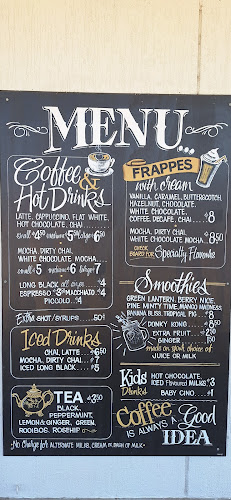 MENU...
Coffee
&
Hot Drinks
LATTE, CAPPUCCINO, FLAT WHITE,
HOT CHOCOLATE, CHAI
small 4.50 medium 5.50 large 6.50
MOCHA, DIRTY CHAI,
WHITE CHOCOLATE MOCHA
small 5 medium 6 large 7
LONG BLACK all sizes 4
ESPRESSO 3.50 MACCHIATO 4
PICCOLO 4
EXTRA SHOT / SYRUPS .50¢
Iced Drinks
CHAI, LATTE $6.50
MOCHA, DIRTY CHAI $7
ICED LONG BLACK $5
TEA $3.50
BLACK,
PEPPERMINT,
LEMON & GINGER, GREEN,
ROOIBOS, ROSEHIP
FRAPPES
with cream
VANILLA, CARAMEL, BUTTERSCOTCH,
HAZELNUT, CHOCOLATE,
WHITE CHOCOLATE,
COFFEE, DECAFE, CHAI $8
MOCHA, DIRTY CHAI,
WHITE CHOCOLATE MOCHA 8.50
CHECK BOARD FOR Specialty Flavours
Smoothies
GREEN LANTERN, BERRY NICE,
PINE MINTY TIME, MANGO MADNESS,
BANANA BLISS, TROPICAL PIG $8
DONKY KONG $8.50
EXTRA FRUIT 2.50
GINGER .50
made on your choice of
JUICE OR MILK
Kids Drinks
HOT CHOCOLATE,
ICED Flavoured MILKS $3
BABY CINO $1
Coffee IS ALWAYS A Good
IDEA
No Charge for ALTERNATE MILKS, CREAM or DASH OF MILK